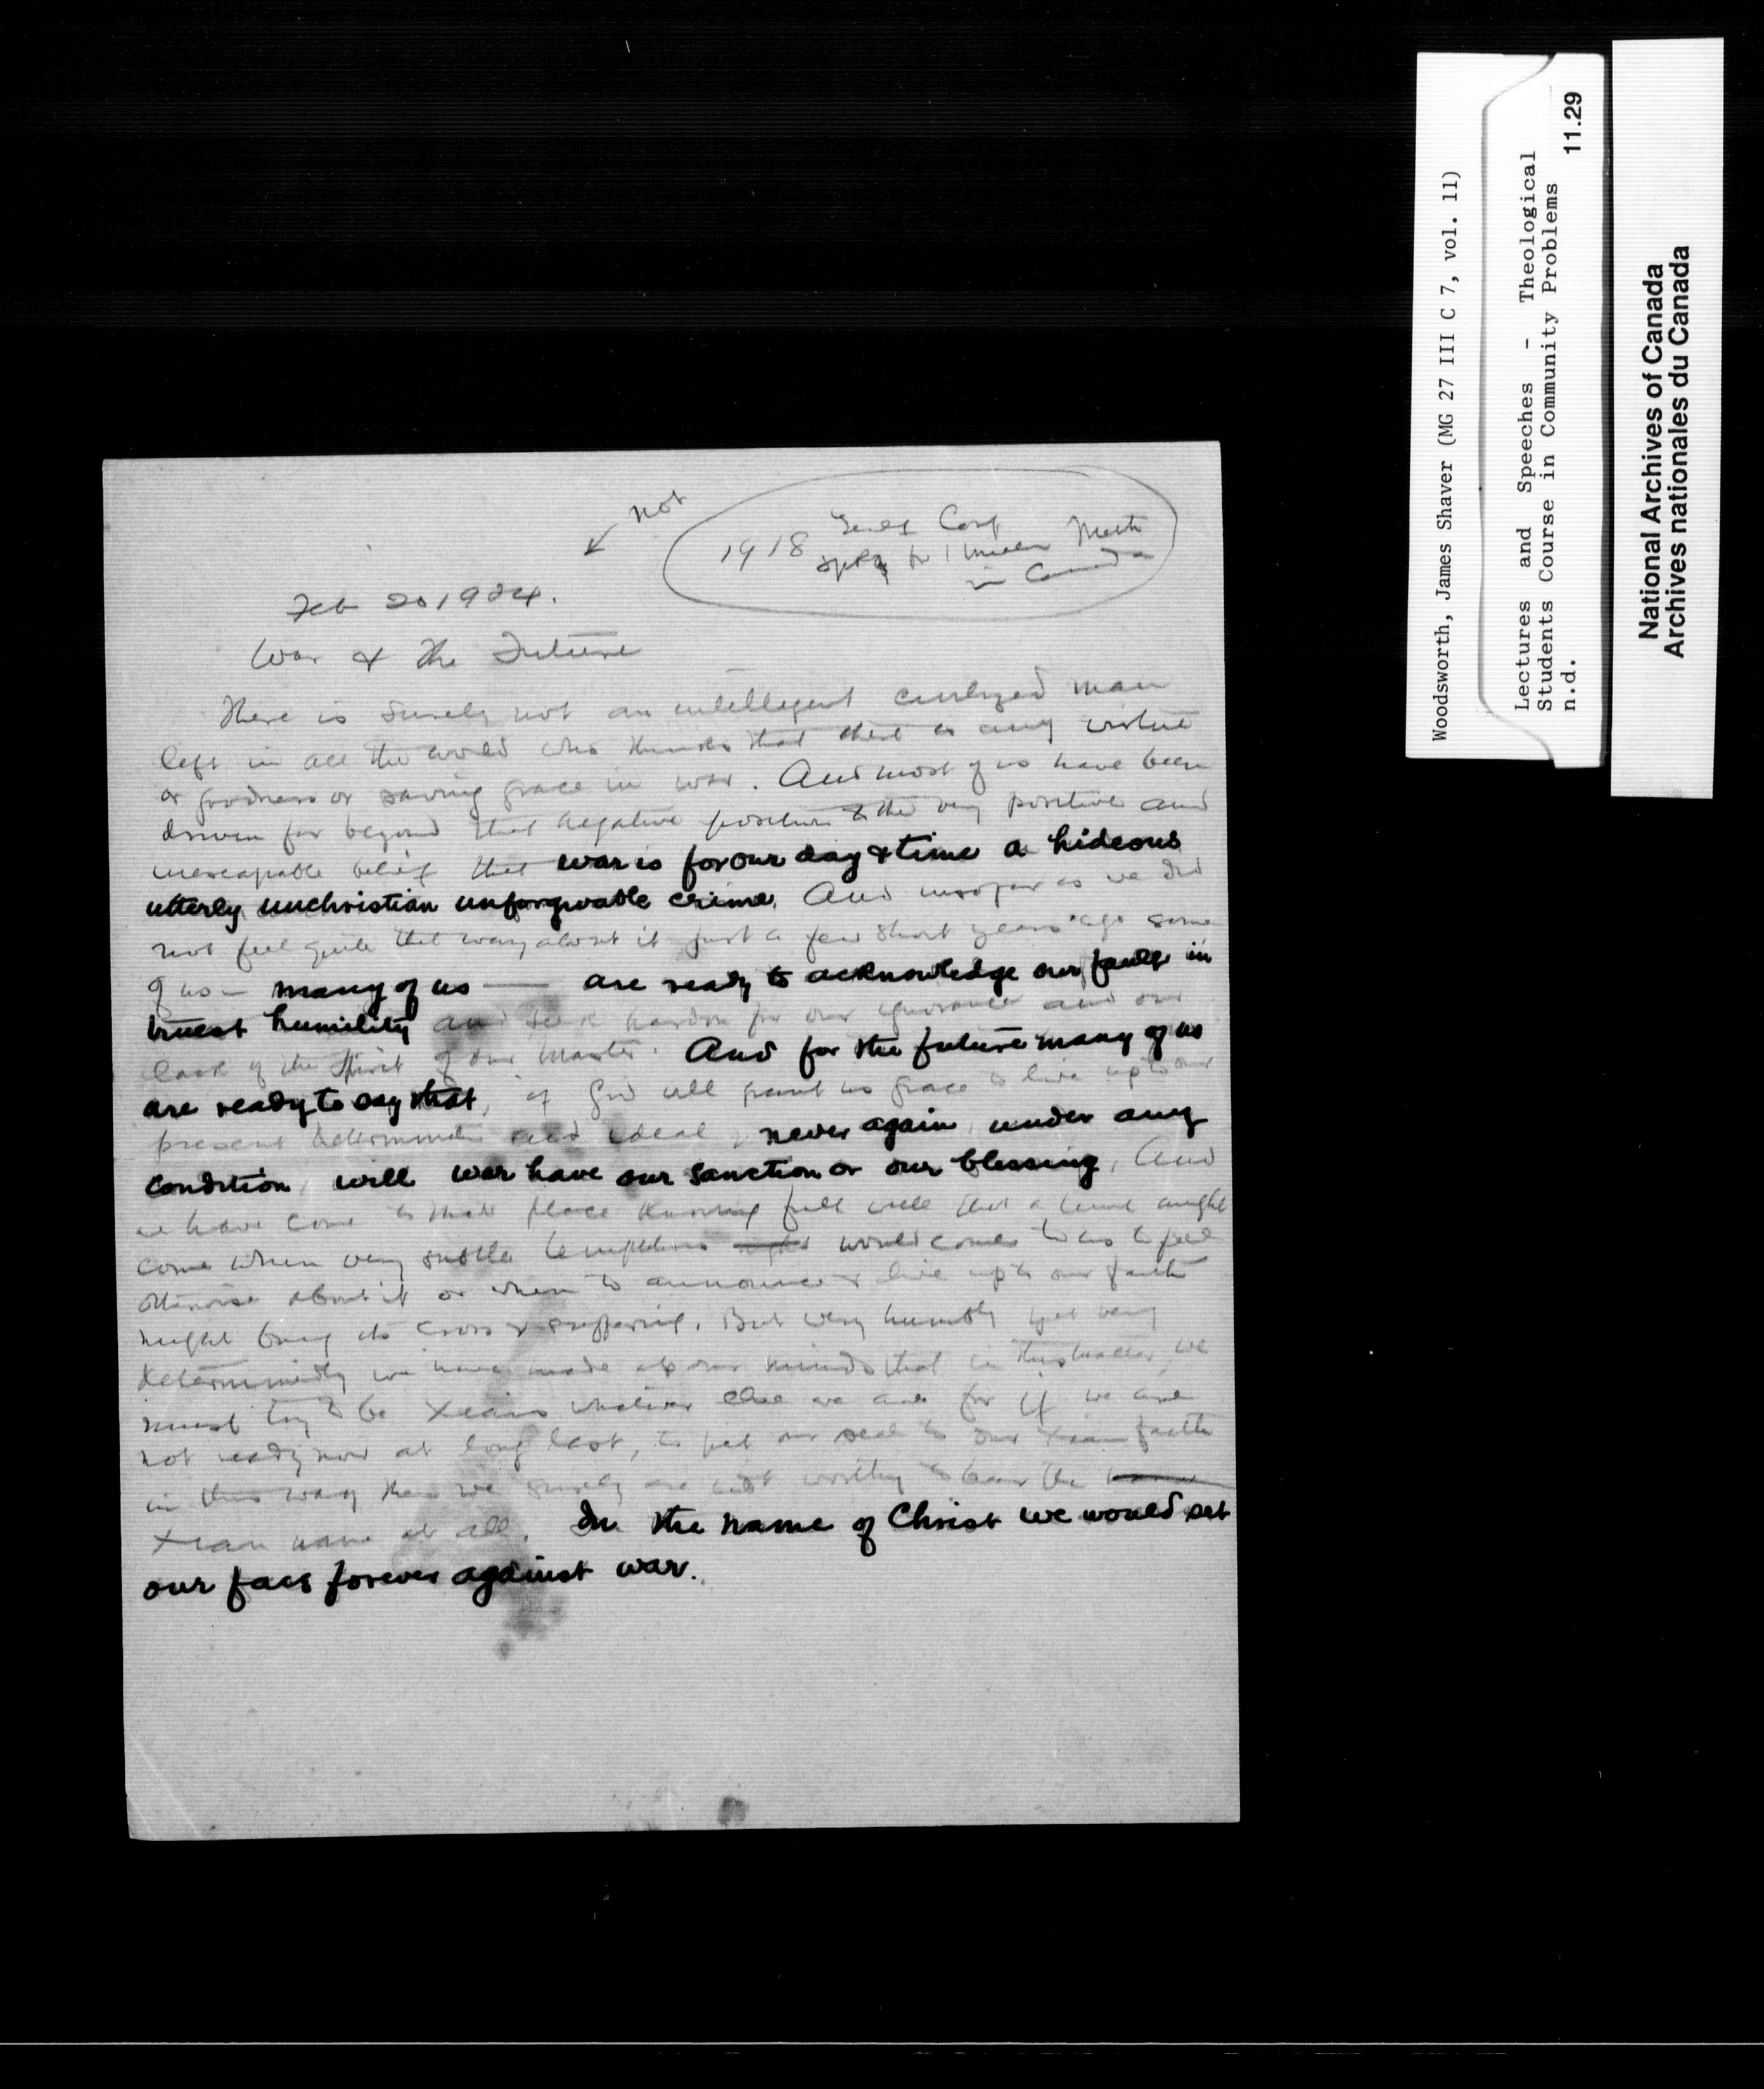 not
1918 Genl Conf
spkg for 1 million Meth
in Canada
Feb 20 1924.
War & the Future
There is surely not an intelligent civilized man
left in all the world who thinks that there is any virtue
or goodness or saving grace in war. And most of us have been
driven far beyond that negative position to the very positive and
inescapable belief that war is for our day & time a hideous
utterly unchristian unforgivable crime. And insofar as we did
not feel quite that way about it just a few short years ago some
of us — many of us — are ready to acknowledge our fault in
truest humility and seek pardon for our ignorance and our
lack of the spirit of our Master. And for the future many of us
are ready to say that, if God will grant us grace to live up to our
present determination and ideal, never again, under any
condition, will war have our sanction or our blessing, And
we have come to that place knowing full well that a time might
come when very subtle temptations might would come to us to feel
otherwise about it or when to announce & live up to our faith
might bring its cross & suffering. But very humbly yet very
determinedly we have made up our minds that in this matter, we
must try to be Xians whatever else we are for if we are
not ready now at long last, to put our seal to our Xian faith
in this way then we surely are not worthy to bear the name
Xian name at all. In the name of Christ we would set
our face forever against war.
Woodsworth, James Shaver (MG 27 III C 7, vol. 11)
Lectures and Speeches - Theological
Students Course in Community Problems
n.d. 11.29
National Archives of Canada
Archives nationales du Canada